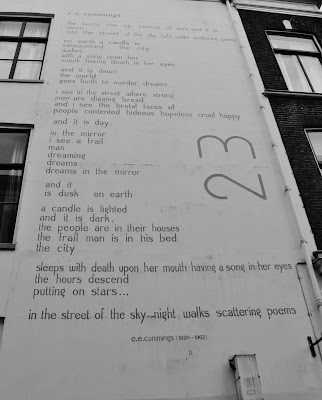 e.e.cummings
the hours rise up putting off stars and it is
dawn
into the street of the sky light walks scattering poems
on earth a candle is
extinguished the city
wakes
with a song upon her
mouth having death in her eyes
and it is dawn
the world
goes forth to murder dreams...
i see in the street where strong
men are digging bread
and i see the brutal faces of
people contented hideous hopeless cruel happy
and it is day.
in the mirror
i see a frail
man
dreaming
dreams
dreams in the mirror
and it
is dusk on earth
a candle is lighted
and it is dark.
the people are in their houses
the frail man is in his bed
the city
sleeps with death upon her mouth having a song in her eyes
the hours descend
putting on stars...
in the street of the sky night walks scattering poems
e.e.cummings (1894-1962)
23